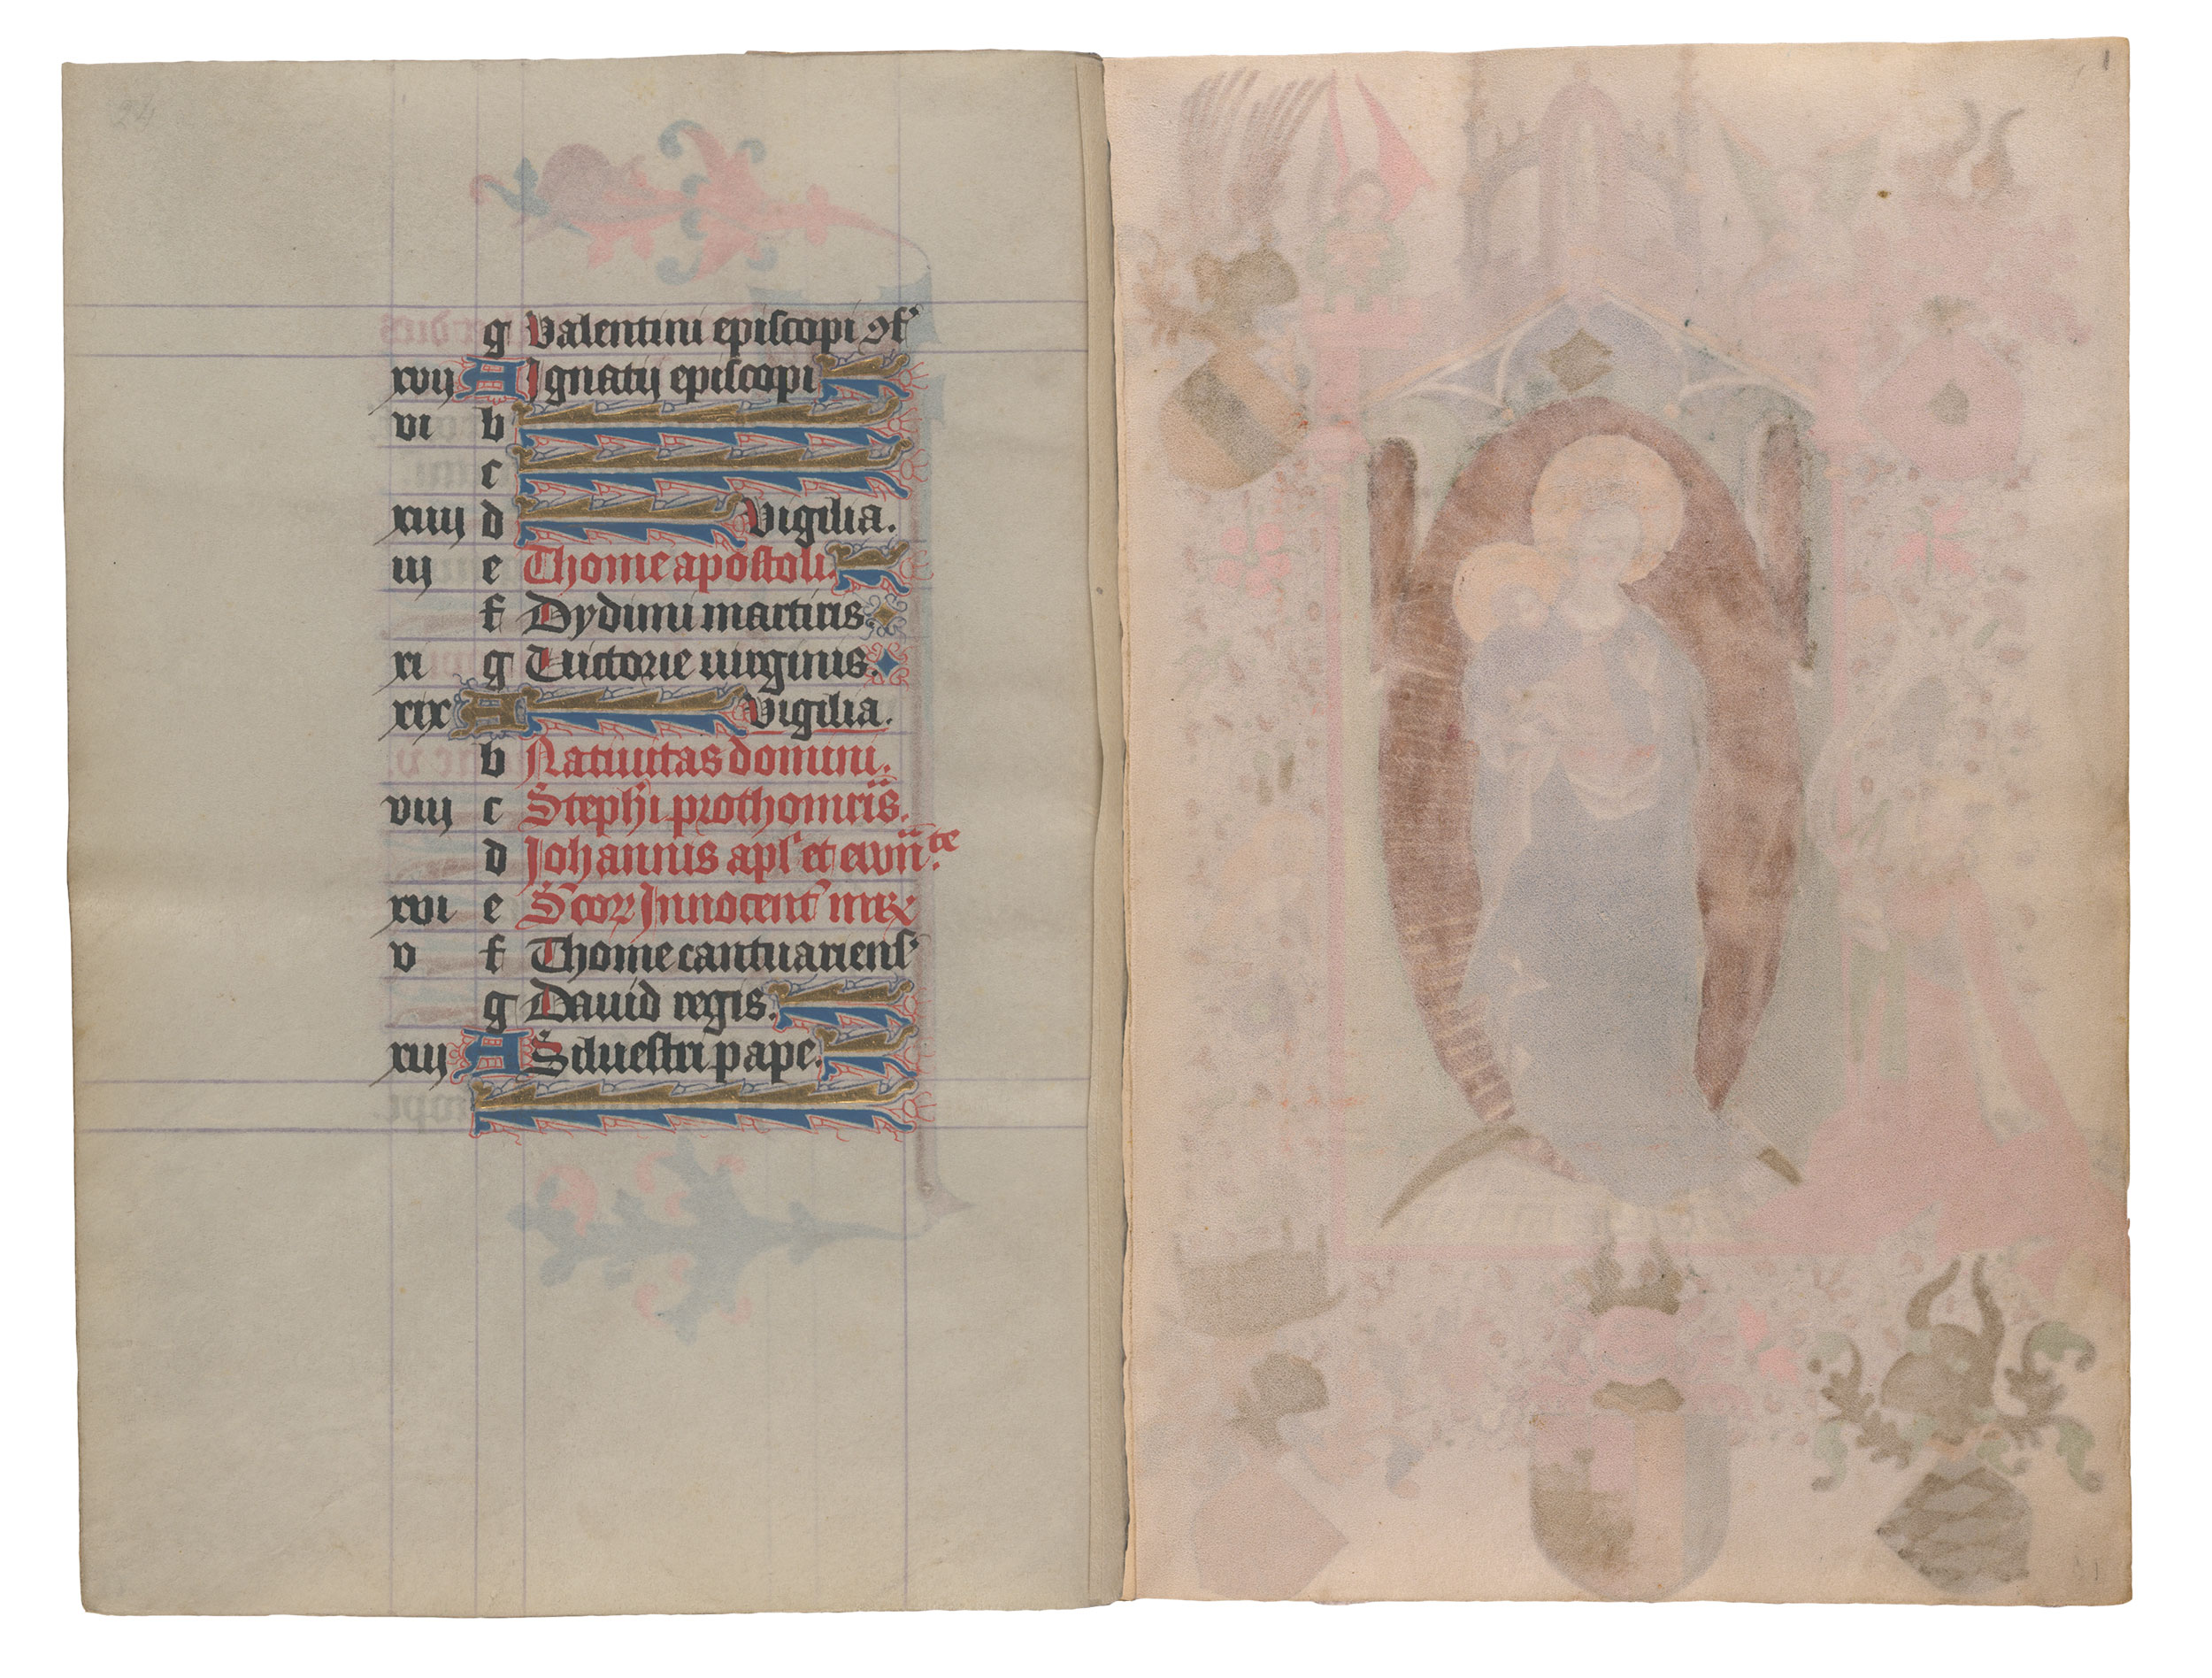 24
1
g Valentini episcopi ꝯf'
xvij A Ignatij episcopi
vi b
c
xiiij d Vigilia.
iij e Thome apostoli.
f Dydimi martiris.
xi g Victorie uirginis.
xix A Vigilia.
b Natiuitas domini.
viij c Stephi prothomr̄is.
d Johannis apl' et ewn̄.te
xvi e Scoꝝ Innocent' mr̄x
v f Thome cantuariens'
g Dauid regis.
xiij A Siluestri pape.